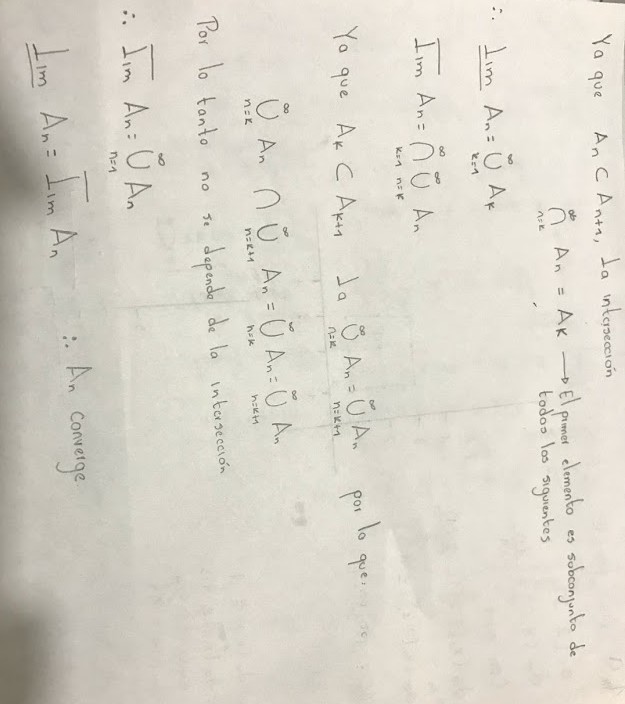 Ya que An ⊂ An+1, La intersección
∞ ⋂ n=k An = Ak → El primer elemento es subconjunto de
todos los siguientes
∴ L̲i̲m̲ An = ∞ ⋃ k=1 Ak
L̅i̅m̅ An = ∞ ⋂ k=1 ∞ ⋃ n=k An
Ya que Ak ⊂ Ak+1 La ∞ ⋃ n=k An = ∞ ⋃ n=k+1 An por lo que:
∞ ⋃ n=k An ∩ ∞ ⋃ n=k+1 An = ∞ ⋃ n=k An = ∞ ⋃ n=k+1 An
Por lo tanto no se depende de la intersección
∴ L̅i̅m̅ An = ∞ ⋃ n=1 An
L̲i̲m̲ An = L̅i̅m̅ An ∴ An converge